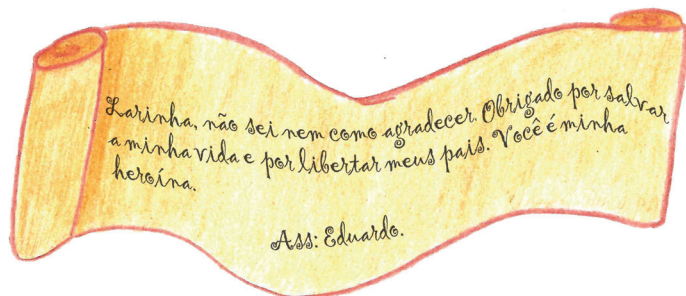 Larinha, não sei nem como agradecer. Obrigado por salvar
a minha vida e por libertar meus pais. Você é minha
heroína.
Ass: Eduardo.